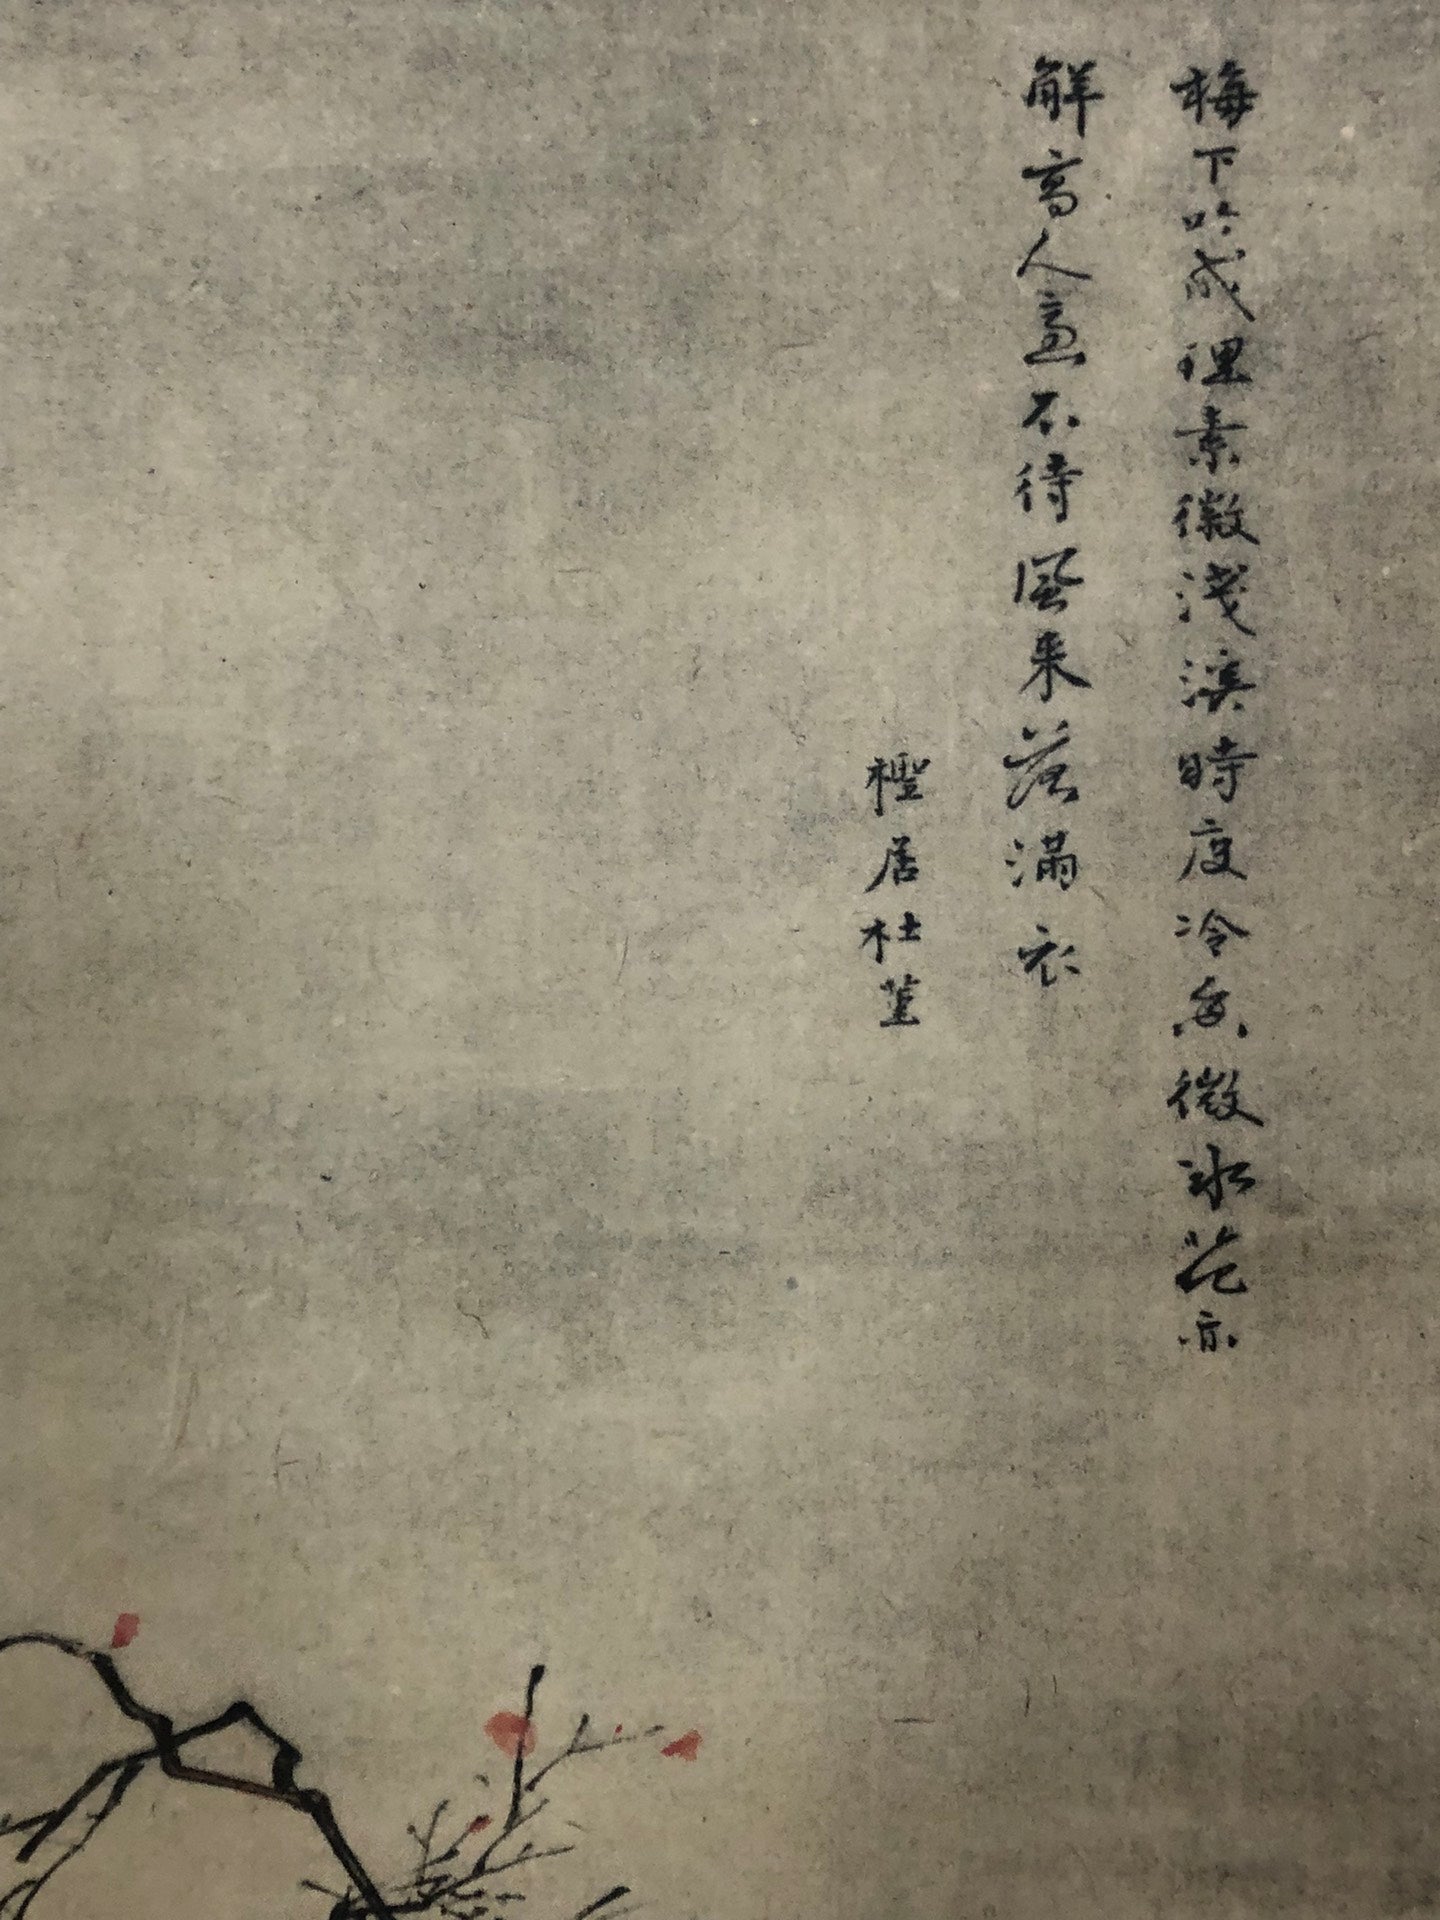 梅下吟成理素徽淺溪時度冷香微氷花亦
解高人意不待風来落滿衣
檉居杜堇